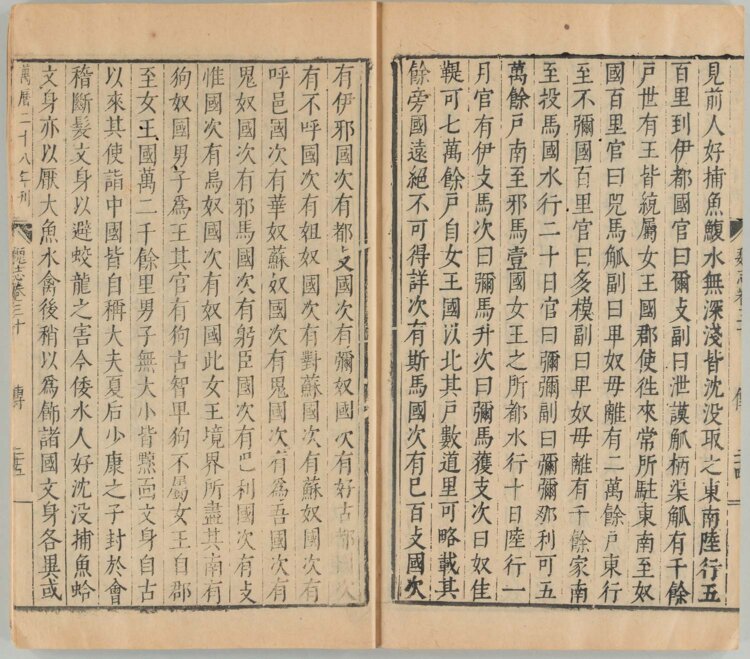 見前人好捕魚鰒水無深淺皆沈没取之東南陸行五
百里到伊都國官曰爾支副曰泄謨觚柄渠觚有千餘
戸世有王皆統屬女王國郡使徃來常所駐東南至奴
國百里官曰兕馬觚副曰卑奴毋離有二萬餘戸東行
至不彌國百里官曰多模副曰卑奴毋離有千餘家南
至投馬國水行二十日官曰彌彌副曰彌彌那利可五
萬餘戸南至邪馬壹國女王之所都水行十日陸行一
月官有伊支馬次曰彌馬升次曰彌馬獲支次曰奴佳
鞮可七萬餘戸自女王國以北其戸數道里可略載其
餘旁國遠絕不可得詳次有斯馬國次有巳百支國次
有伊邪國次有都支國次有彌奴國次有好古都國次
有不呼國次有姐奴國次有對蘇國次有蘇奴國次有
呼邑國次有華奴蘇奴國次有鬼國次有爲吾國次有
鬼奴國次有邪馬國次有躬臣國次有巴利國次有支
惟國次有烏奴國次有奴國此女王境界所盡其南有
狗奴國男子爲王其官有狗古智卑狗不屬女王自郡
至女王國萬二千餘里男子無大小皆黥面文身自古
以來其使詣中國皆自稱大夫夏后少康之子封於會
稽斷髮文身以避蛟龍之害今倭水人好沈没捕魚蛤
文身亦以厭大魚水禽後稍以爲飾諸國文身各異或
萬曆二十八年刊 魏志卷三十 傳 二十五